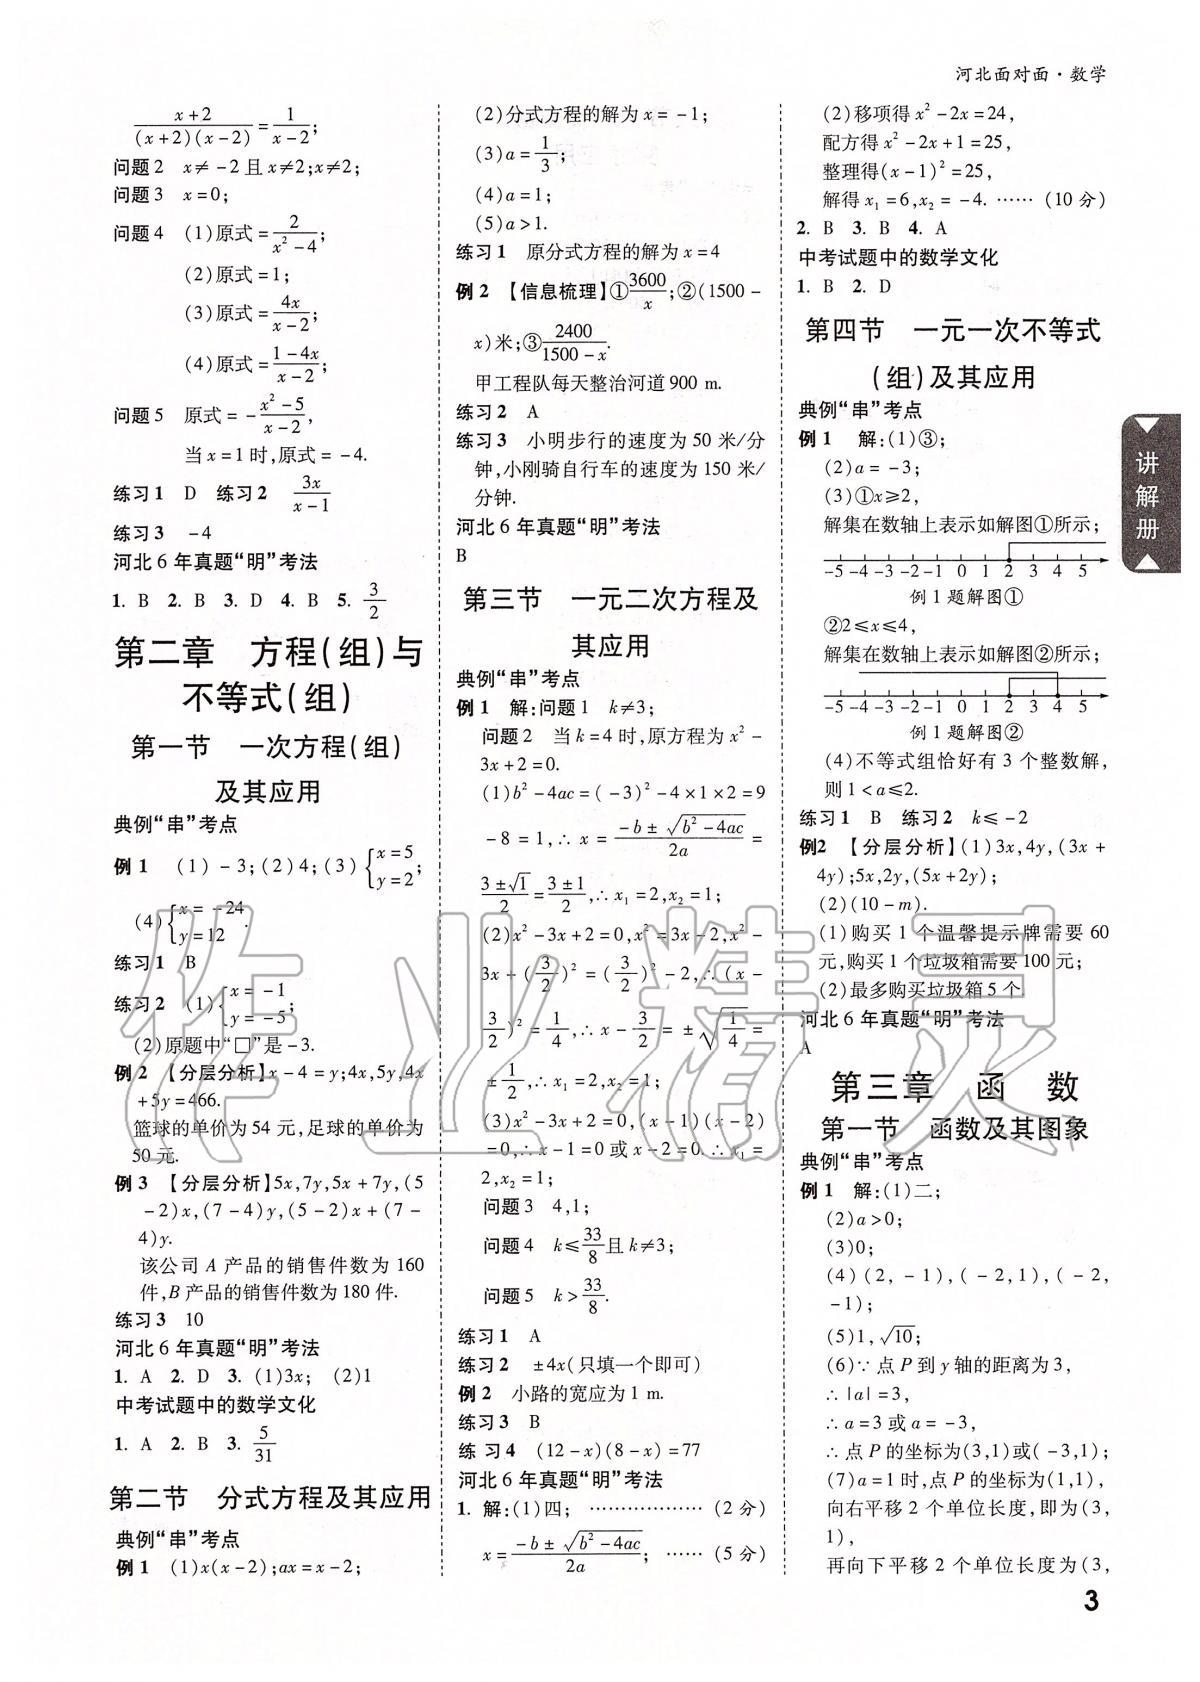 河北面对面·数学
(x+2)/((x+2)(x-2))=1/(x-2);
问题2 x≠-2且x≠2;x≠2;
问题3 x=0;
问题4 (1)原式=2/(x²-4);
(2)原式=1;
(3)原式=4x/(x-2);
(4)原式=(1-4x)/(x-2);
问题5 原式=-(x²-5)/(x-2),
当x=1时,原式=-4.
练习1 D 练习2 3x/(x-1)
练习3 -4
河北6年真题“明”考法
1. B 2. B 3. D 4. B 5. 3/2
第二章 方程(组)与
不等式(组)
第一节 一次方程(组)
及其应用
典例“串”考点
例1 (1)-3;(2)4;(3){x=5 y=2;
(4){x=-24 y=12.
练习1 B
练习2 (1){x=-1 y=-5;
(2)原题中“□”是-3.
例2 【分层分析】x-4=y;4x,5y,4x
+5y=466.
篮球的单价为54元,足球的单价为
50元.
例3 【分层分析】5x,7y,5x+7y,(5
-2)x,(7-4)y,(5-2)x+(7-
4)y.
该公司A产品的销售件数为160
件,B产品的销售件数为180件.
练习3 10
河北6年真题“明”考法
1. A 2. D 3. (1)3x; (2)1
中考试题中的数学文化
1. A 2. B 3. 5/31
第二节 分式方程及其应用
典例“串”考点
例1 (1)x(x-2);ax=x-2;
(2)分式方程的解为x=-1;
(3)a=1/3;
(4)a=1;
(5)a>1.
练习1 原分式方程的解为x=4
例2 【信息梳理】①3600/x;②(1500-
x)米;③2400/(1500-x).
甲工程队每天整治河道900 m.
练习2 A
练习3 小明步行的速度为50米/分
钟,小刚骑自行车的速度为150米/
分钟.
河北6年真题“明”考法
B
第三节 一元二次方程及
其应用
典例“串”考点
例1 解:问题1 k≠3;
问题2 当k=4时,原方程为x²-
3x+2=0.
(1)b²-4ac=(-3)²-4×1×2=9
-8=1,∴x=(-b±√(b²-4ac))/2a=
(3±√1)/2=(3±1)/2,∴x₁=2,x₂=1;
(2)x²-3x+2=0,x²=3x-2,x²-
3x+(3/2)²=(3/2)²-2,∴(x-
3/2)²=1/4,∴x-3/2=±√(1/4)=
±1/2,∴x₁=2,x₂=1;
(3)x²-3x+2=0,(x-1)(x-2)
=0,∴x-1=0或x-2=0.∴x₁=
2,x₂=1;
问题3 4,1;
问题4 k≤33/8且k≠3;
问题5 k>33/8.
练习1 A
练习2 ±4x(只填一个即可)
例2 小路的宽应为1 m.
练习3 B
练习4 (12-x)(8-x)=77
河北6年真题“明”考法
1. 解:(1)四; ………………(2分)
x=(-b±√(b²-4ac))/2a; ……(5分)
(2)移项得x²-2x=24,
配方得x²-2x+1=25,
整理得(x-1)²=25,
解得x₁=6,x₂=-4. ……(10分)
2. B 3. B 4. A
中考试题中的数学文化
1. B 2. D
第四节 一元一次不等式
(组)及其应用
典例“串”考点
例1 解:(1)③;
(2)a=-3;
(3)①x≥2,
解集在数轴上表示如解图①所示;
-5 -4 -3 -2 -1 0 1 2 3 4 5
例1题解图①
②2≤x≤4,
解集在数轴上表示如解图②所示;
-5 -4 -3 -2 -1 0 1 2 3 4 5
例1题解图②
(4)不等式组恰好有3个整数解,
则1<a≤2.
练习1 B 练习2 k≤-2
例2 【分层分析】(1)3x,4y,(3x+
4y);5x,2y,(5x+2y);
(2)(10-m).
(1)购买1个温馨提示牌需要60
元,购买1个垃圾箱需要100元;
(2)最多购买垃圾箱5个.
河北6年真题“明”考法
A
第三章 函 数
第一节 函数及其图象
典例“串”考点
例1 解:(1)二;
(2)a>0;
(3)0;
(4)(2,-1),(-2,1),(-2,
-1);
(5)1,√10;
(6)∵点P到y轴的距离为3,
∴|a|=3,
∴a=3或a=-3,
∴点P的坐标为(3,1)或(-3,1);
(7)a=1时,点P的坐标为(1,1),
向右平移2个单位长度,即为(3,
1),
再向下平移2个单位长度为(3,
讲解册
3
作业精灵